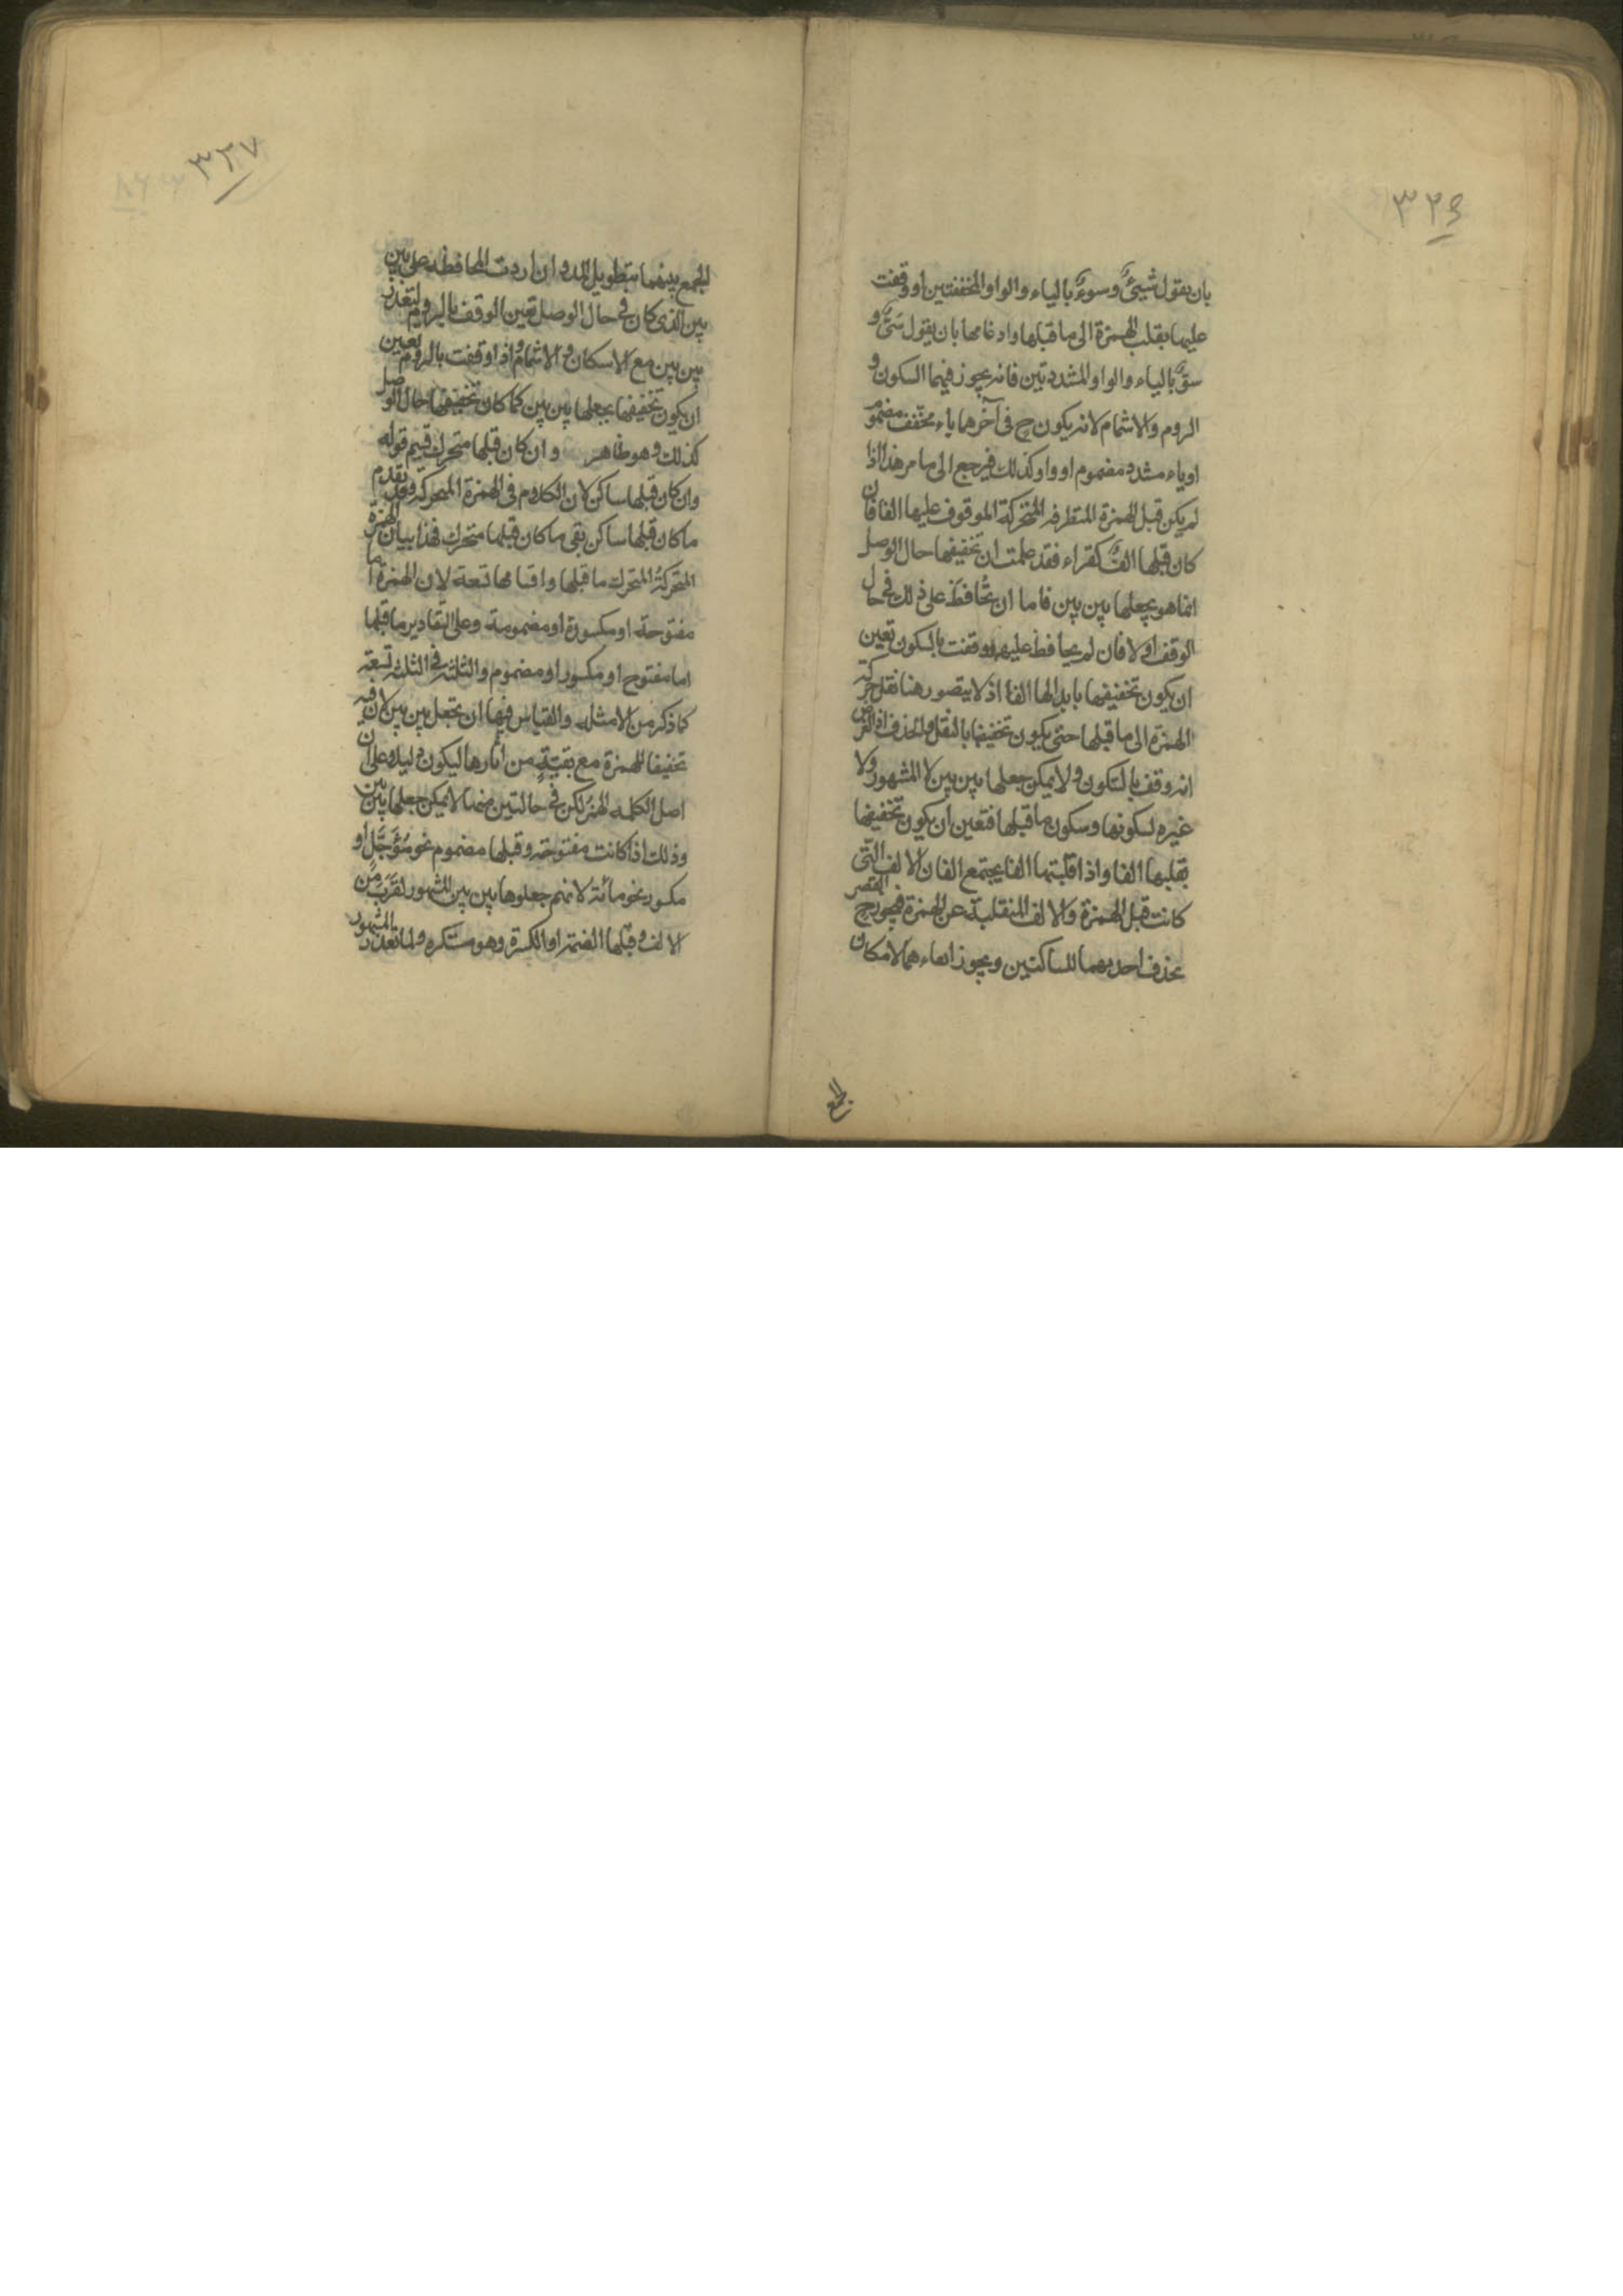 ٣٢٦
بان يقول شيئٌ وسوءٌ بالياء والواو المخففتين او وقفت
عليها بقلب الهمزة الى ما قبلها وادغامها بان يقول شىٌّ و
سوٌّ بالياء والواو المشددتين فانه يجوز فيهما السكون و
الروم والاشمام لانه يكون ح فى آخرهما ياء مخفف مضموم
او ياء مشدد مضموم او واو كذلك فيرجع الى ما مر هذا اذا
لم يكن قبل الهمزة المتطرفه المتحركة الموقوف عليها الفا فان
كان قبلها الف كقراء فقد علمت ان تخفيفها حال الوصل
انما هو بجعلها بين بين فاما ان تُحافظ على ذلك فى حال
الوقف اولا فان لم يحافظ عليها ووقفت بالسكون تعين
ان يكون تخفيفها بابدالها الفا اذ لا يتصور هنا نقل حركة
الهمزة الى ما قبلها حتى يكون تخفيفها بالنقل والحذف اذ الفرض
انه وقف بالسكون ولا يمكن جعلها بين بين لا المشهور ولا
غيره لسكونها وسكون ما قبلها فتعين ان يكون تخفيفها
بقلبها الفا واذا قلبتها الفا يجتمع الفان الالف التى
كانت قبل الهمزة والالف المنقلبة عن الهمزة فيجوز ح القصر
بحذف احديهما للساكنين ويجوز ابقاءهما لامكان
الجمع
٣٢٧
الجمع بينهما بتطويل المد وان اردت المحافظة على بين
بين الذى كان فى حال الوصل تعين الوقف بالروم لتعذر
بين بين مع الاسكان والاشمام واذا وقفت بالروم تعين
ان يكون تخفيفها بجعلها بين بين كما كان تخفيفها حال الوصل
كذلك وهو ظاهر وان كان قبلها متحرك قسيم قوله
وان كان قبلها ساكن لان الكلام فى الهمزة المتحركة وقد تقدم
ما كان قبلها ساكن بقى ما كان قبلها متحرك فهذا بيان الهمزة
المتحركة المتحرك ما قبلها واقسامها تسعة لان الهمزة اما
مفتوحة او مكسورة او مضمومة وعلى التقادير ما قبلها
اما مفتوح او مكسور او مضموم والثلثة فى الثلثة تسعة
كما ذكر من الامثلة والقياس فيها ان تجعل بين بين لان فيه
تخفيفا للهمزة مع بقيّةٍ من اثارها ليكون دليلا على ان
اصل الكلمه الهمز لكن فى حالتين منها لا يمكن جعلها بين بين
وذلك اذا كانت مفتوحة وقبلها مضموم نحو مُؤَجَّل او
مكسور نحو مائة لانهم جعلوها بين بين المشهور لقرب من
الالف وقبلها الضمة او الكسرة وهو مستكره ولما تعذر المشهور